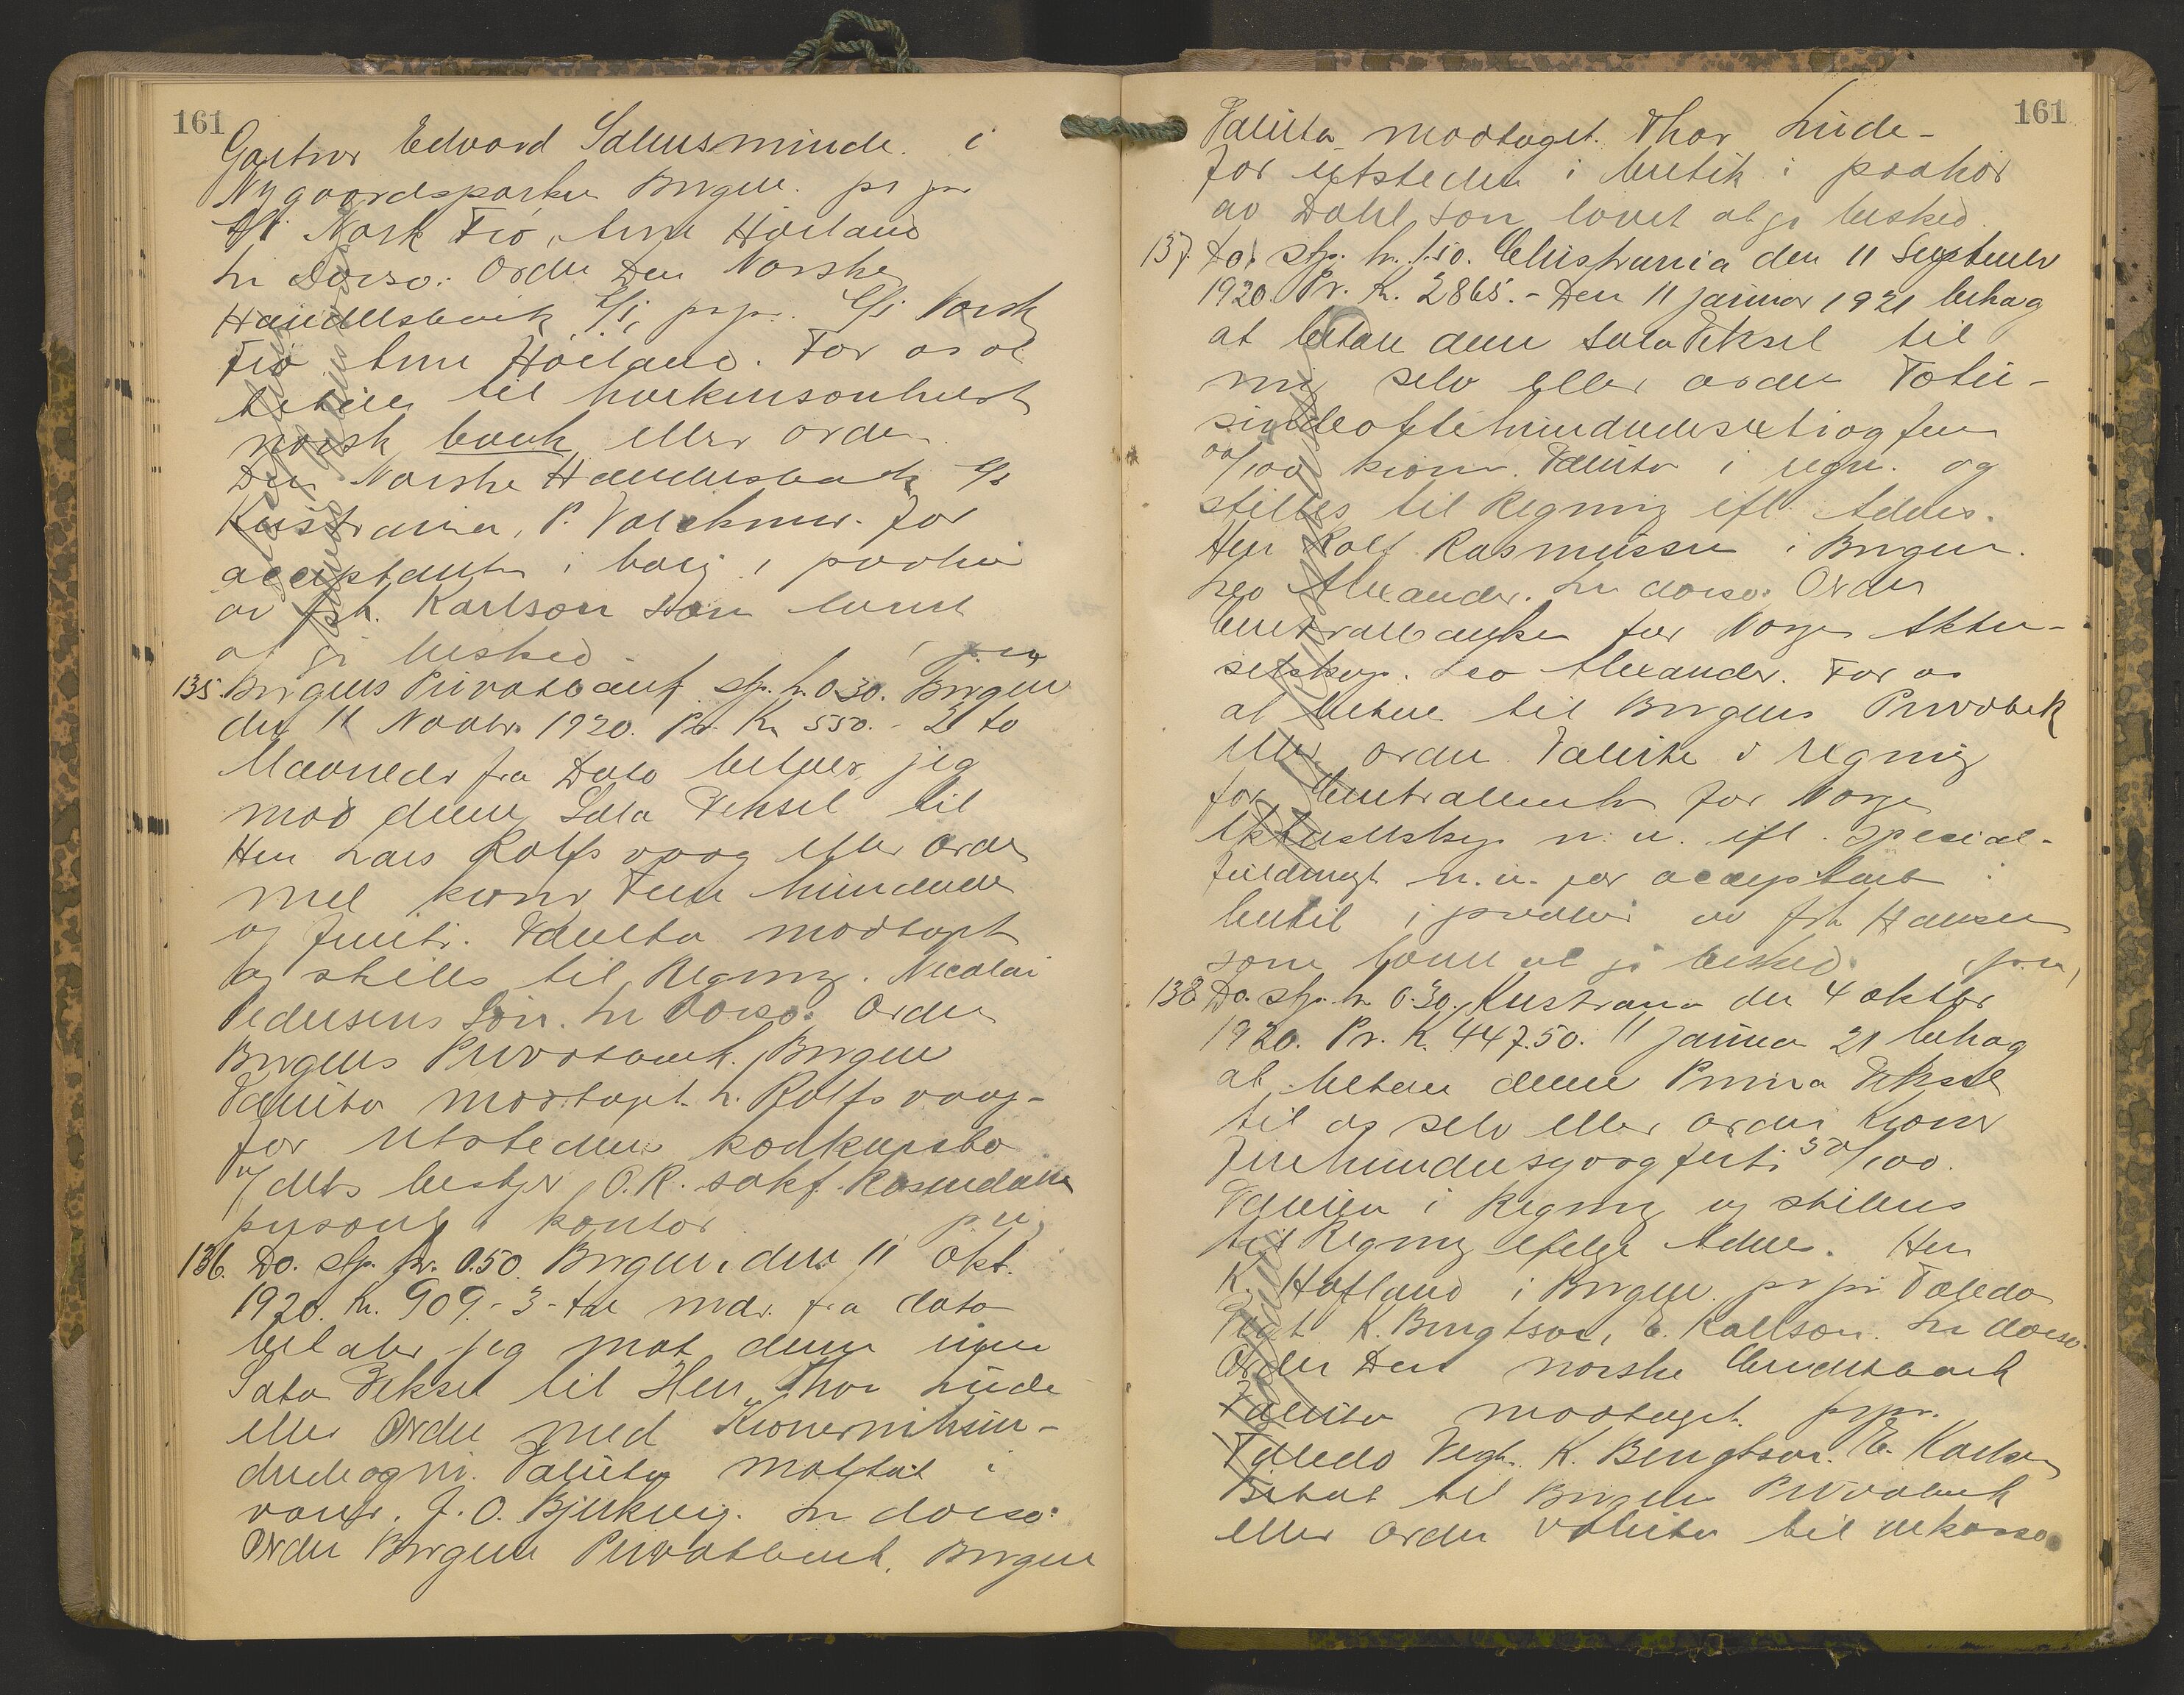 161
Gartner Edvard Salensminde i
Nygaardsparken Bergen. pr pr
A/S Norsk Frø, Arne Høiland
In Dorso: Ordre Den Norske
Handelsbank A/S, pr pr. A/S Norsk
Frø Arne Høiland. For os at
betale til hvilkensomhelst
norsk bank eller ordre
Den Norske Handelsbank A/S
Kristiania, P. Volckmar. for
acceptanten i bolig i paahør
av frk. Karlson som lovet
at gi besked. p.u.
135. Bergens Privatbank stp. kr. 0.30. Bergen
den 11 Novbr. 1920. Pr. Kr 550.- 2 to
Maaneder fra Dato betaler jeg
mod denne Sola Veksel til
Herr Lars Rolfsvaag eller Ordre
med kroner Fem hundrede
og femti. Valuta modtaget
og stilles til Regning. Nicolai
Pedersens Søn. In Dorso: Ordre
Bergens Privatbank. Bergen
Valuta modtaget. L. Rolfsvaag-
for utstederens konkursbo
v/ dets bestyrer, O.R. sakf. Rosendahl
personlig i kontor. p.u.
136. Do. stp. kr. 0.50. Bergen, den 11 Okt.
1920. Kr. 909.- 3 - tre mdr. fra dato
betaler jeg mot denne min
Sola Veksel til Herr Thor Lude
eller Ordre med Kronernihun-
dredeogni. Valuta mottat i
varer. J. O. Bjerkvig. In dorso:
Ordre Bergens Privatbank. Bergen
161
Valuta modtaget. Thor Lude-
for utstederen i butik i paahør
av Dahl, som lovet at gi besked.
137. Do. stp. kr. 1.50. Christiania den 11 September
1920. Pr. Kr. 2865.- Den 11 januar 1921 behag
at betale denne Sola Veksel til
mig selv eller ordre Totu-
sindeottehundredesekstiogfem
00/100 kroner. Valuta i regn. og
stilles til Regning ifl. Advis.
Herr Rolf Rasmussen i Bergen.
Leo Alexander. In dorso: Ordre
Centralbanken for Norge Aktie-
selskap. Leo Alexander. For os
at betale til Bergens Privatbk
eller ordre. Valuta i Regning
for Centralbanken for Norge
Aktieselskap n.u. ifl. special-
fuldmagt n.u. for acceptant i
butik i paahør av frk Hansen
som lovet at gi besked. p.u.
138. Do. stp. kr. 0.30. Kristiania den 4 oktbr
1920. Pr. Kr. 447.50. 11 januar 21 behag
at betale denne Prima Veksel
til os selv eller ordre Kroner
Firehundresyvogførti 50/100.
Valuta i Regning og stilles
til Regning ifølge Advis. Herr
K. Hofland i Bergen. pr pr. Toledo
Vegt. K. Bengtson, E. Karlson. In dorso:
Ordre Den norske Creditbank
Valuta modtaget. pr pr.
Toledo Vegt. K. Bengtson. E. Karlson
Betal til Bergens Privatbank
eller ordre valuta til inkasso.